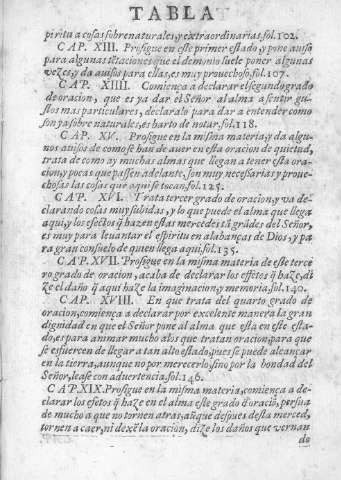 TABLA
piritu a cosas sobrenaturales, y extraordinarias. fol. 102.
CAP. XIII. Prosigue en este primer estado, y pone auiso
para algunas tẽtaciones que el demonio suele poner algunas
vezes, y da auisos para ellas, es muy prouechoso. fol. 107.
CAP. XIIII. Comiença a declarar el segundo grado
de oracion, que es ya dar el Señor al alma a sentir gus-
tos mas particulares, declaralo para dar a entender como
son ya sobre naturales, es harto de notar. fol. 118.
CAP. XV. Prosigue en la misma materia, y da algu-
nos auisos de como se han de auer en esta oracion de quietud,
trata de como ay muchas almas que llegan a tener esta ora-
cion, y pocas que passen adelante, son muy necessarias y proue-
chosas las cosas que aqui se tocan. fol. 125.
CAP. XVI. Trata tercer grado de oracion, y va de-
clarando cosas muy subidas, y lo que puede el alma que llega
aqui, y los efectos q̃ hazen estas mercedes tã grãdes del Señor,
es muy para leuantar el espiritu en alabanças de Dios, y pa-
ra gran consuelo de quien llega aqui. fol. 135.
CAP. XVII. Prosigue en la misma materia de este terce-
ro grado de oracion, acaba de declarar los effetos q̃ haze, di-
ze el daño q̃ aqui haze la imaginacion, y memoria. fol. 140.
CAP. XVIII. En que trata del quarto grado de
oracion, comiença a declarar por excelente manera la gran
dignidad en que el Señor pone al alma que esta en este esta-
do, es para animar mucho a los que tratan oracion, para que
se esfuercen de llegar a tan alto estado, pues se puede alcançar
en la tierra, aunque no por merecerlo, sino por la bondad del
Señor, lease con aduertencia. fol. 146.
CAP. XIX. Prosigue en la misma materia, comiença a de-
clarar los efetos q̃ haze en el alma este grado d̃ oraciõ, persua-
de mucho a que no tornen atras, aũque despues desta merced,
tornen a caer, ni dexẽ la oracion, dize los daños que vernan
do